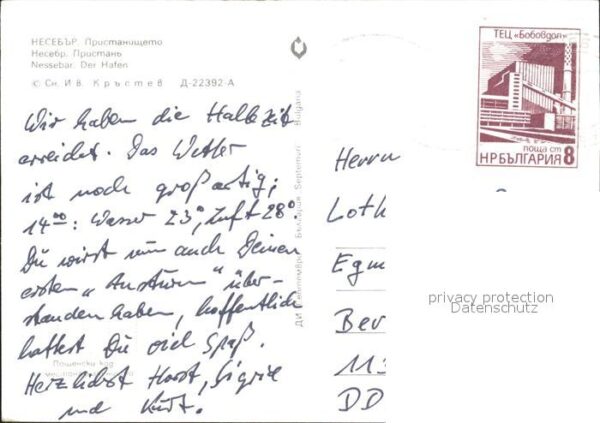 НЕСЕБЪР. Пристанището
Несебр. Пристань
Nessebar. Der Hafen
© Сн. Ив. Кръстев Д-22392-А
Wir haben die Halbzeit
erreicht. Das Wetter
ist noch großartig;
14⁰⁰: Wasser 23°, Luft 28°.
Du wirst nun auch Deinen
ersten „Ansturm" über-
standen haben, hoffentlich
hattest Du viel Spaß.
Herzlichst Horst, Sigrid
und Kurt.
Пощенски код
ДИ Септември България Septemvri Bulgaria
ТЕЦ „Бобовдол"
поща ст
НРБЪЛГАРИЯ 8
Herrn
Loth
Egm
Ber
113
DD
privacy protection
Datenschutz